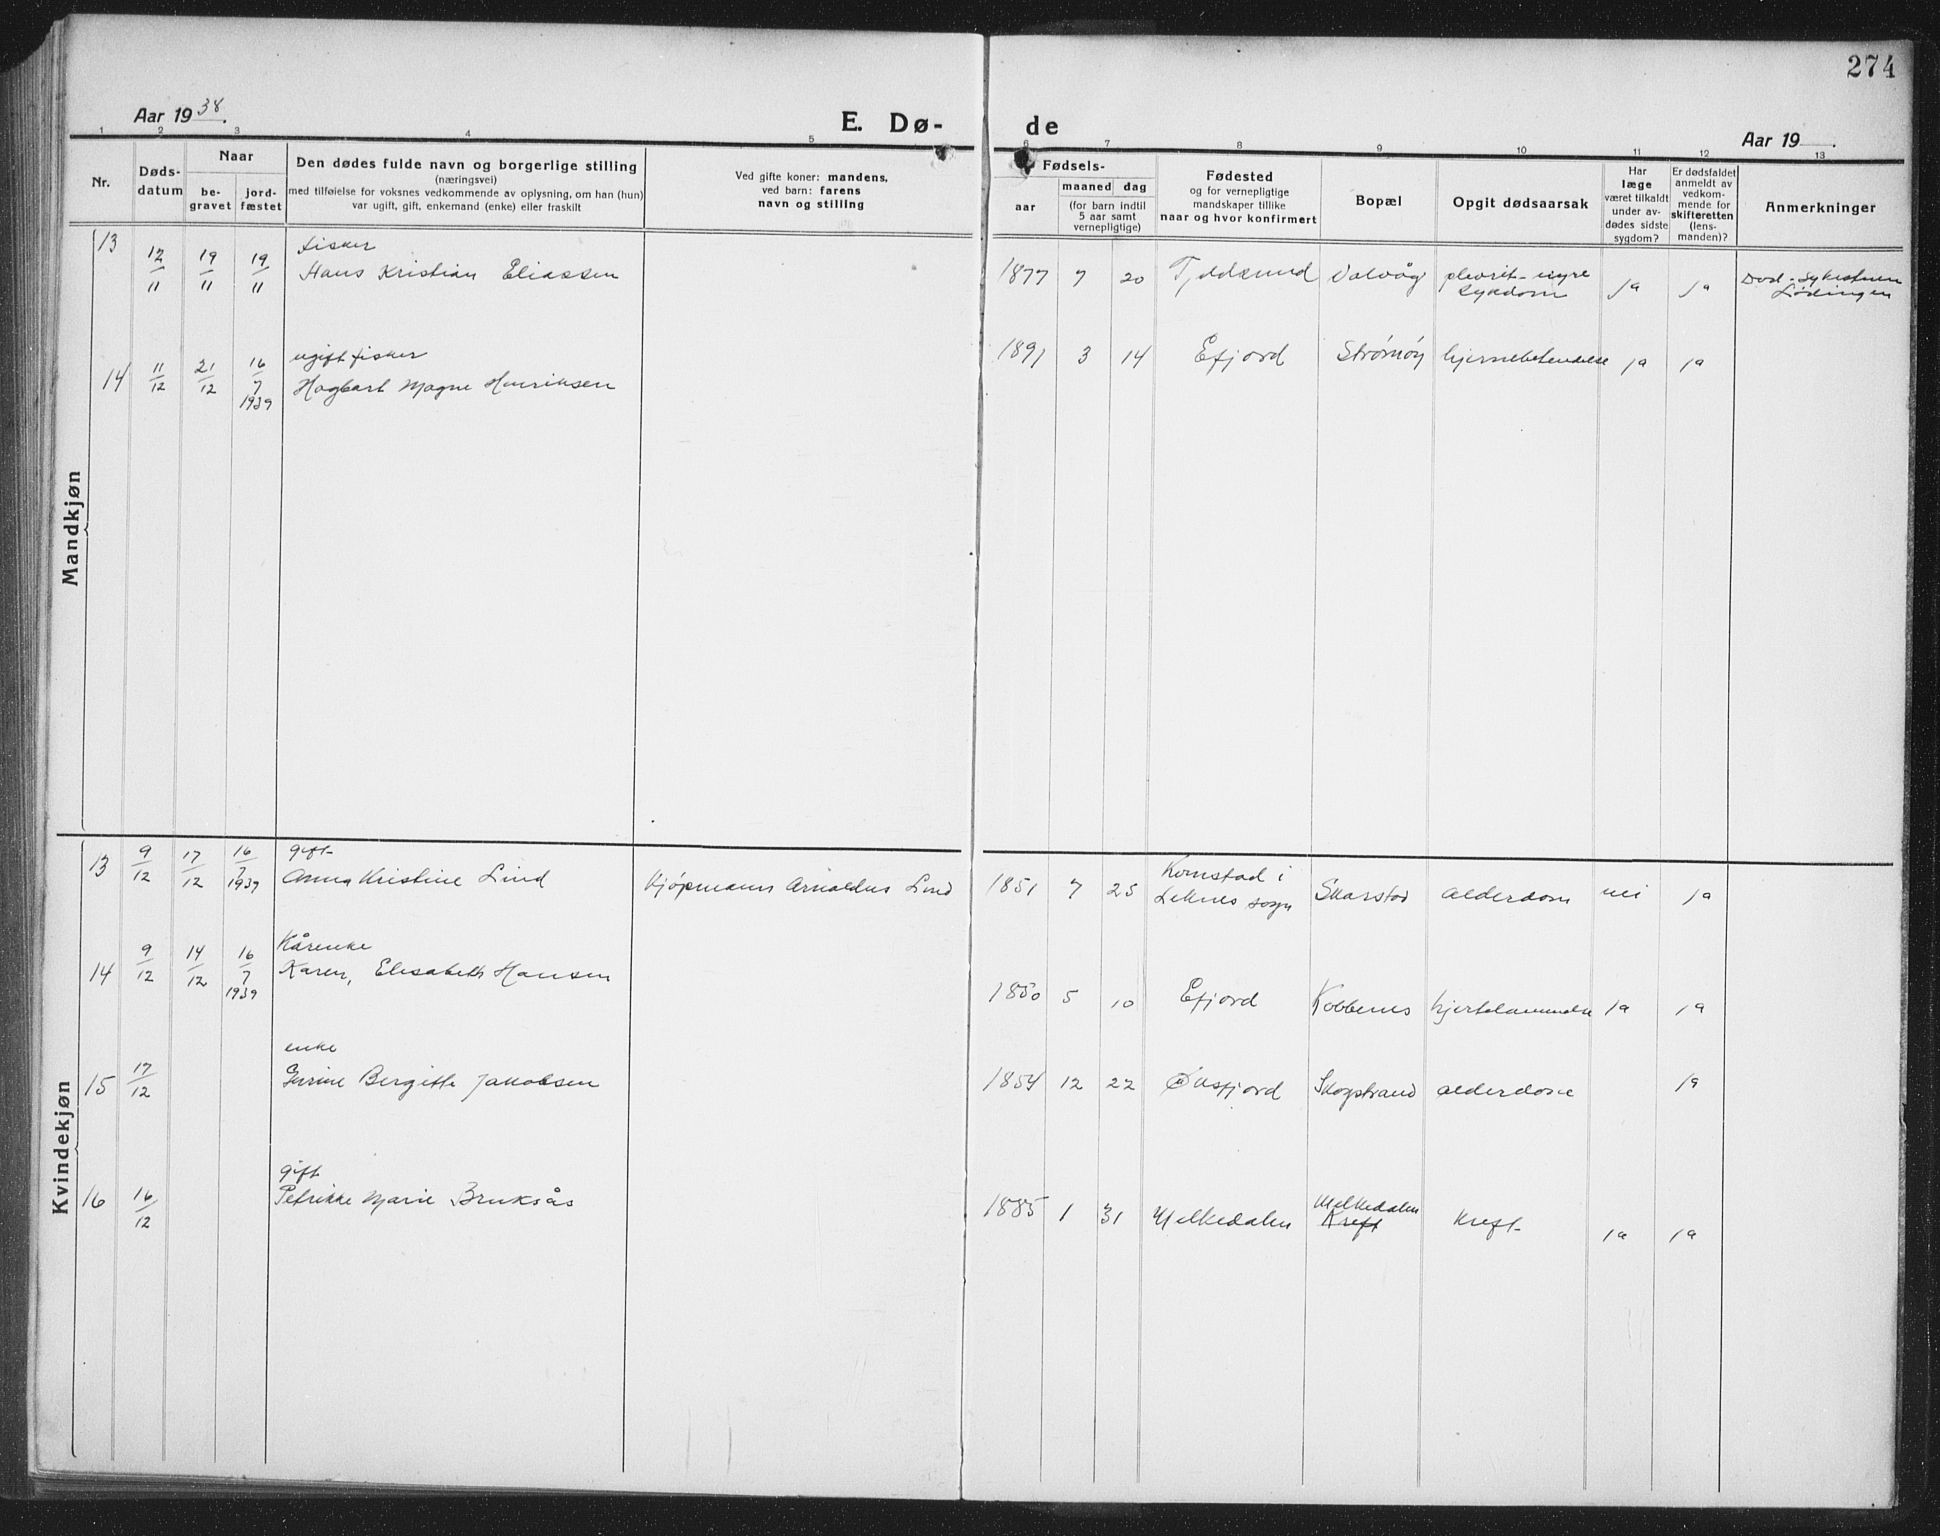 274
Aar 1938.
E. Dø-
de
Aar 19
1 2 3 4 5 6 7 8 9 10 11 12 13
Nr.
Døds-
datum
Naar
be-
gravet
jord-
fæstet
Den dødes fulde navn og borgerlige stilling
(næringsvei)
med tilføielse for voksnes vedkommende av oplysning, om han (hun)
var ugift, gift, enkemand (enke) eller fraskilt
Ved gifte koner: mandens,
ved barn: farens
navn og stilling
Fødsels-
aar
maaned dag
(for barn indtil
5 aar samt
vernepligtige)
Fødested
og for vernepligtige
mandskaper tillike
naar og hvor konfirmert
Bopæl
Opgit dødsaarsak
Har
læge
været tilkaldt
under av-
dødes sidste
sygdom?
Er dødsfaldet
anmeldt av
vedkom-
mende for
skifteretten
(lens-
manden)?
Anmerkninger
Mandkjøn
fisker
13 12/11 19/11 19/11 Hans Kristian Eliassen 1877 7 20 Tjeldsund Valvåg plevrit-nyre
sykdom ja ja Død Sykestuen
Lødingen
ugift fisker
14 11/12 21/12 16/7 1939 Hagbart Magne Henriksen 1891 3 14 Efjord Strømøy hjernebetendelse ja ja
Kvindekjøn
gift
13 9/12 17/12 16/7 1939 Anna Kristine Lind kjøpmann Arnoldus Lind 1851 7 25 Komstad i
Leknes sogn Skarstad alderdom nei ja
Kårenke
14 9/12 14/12 16/7 1939 Karen, Elisabeth Hansen 1850 5 10 Efjord Kobbenes hjertelammelse ja ja
enke
15 17/12 Bergitte Jakobsen 1854 12 22 Øksfjord Skogstrand alderdom ja
gift
16 16/12 Petrikke Marie Bruksås 1885 1 31 Melkedalen Melkedalen
Kreft kreft ja ja